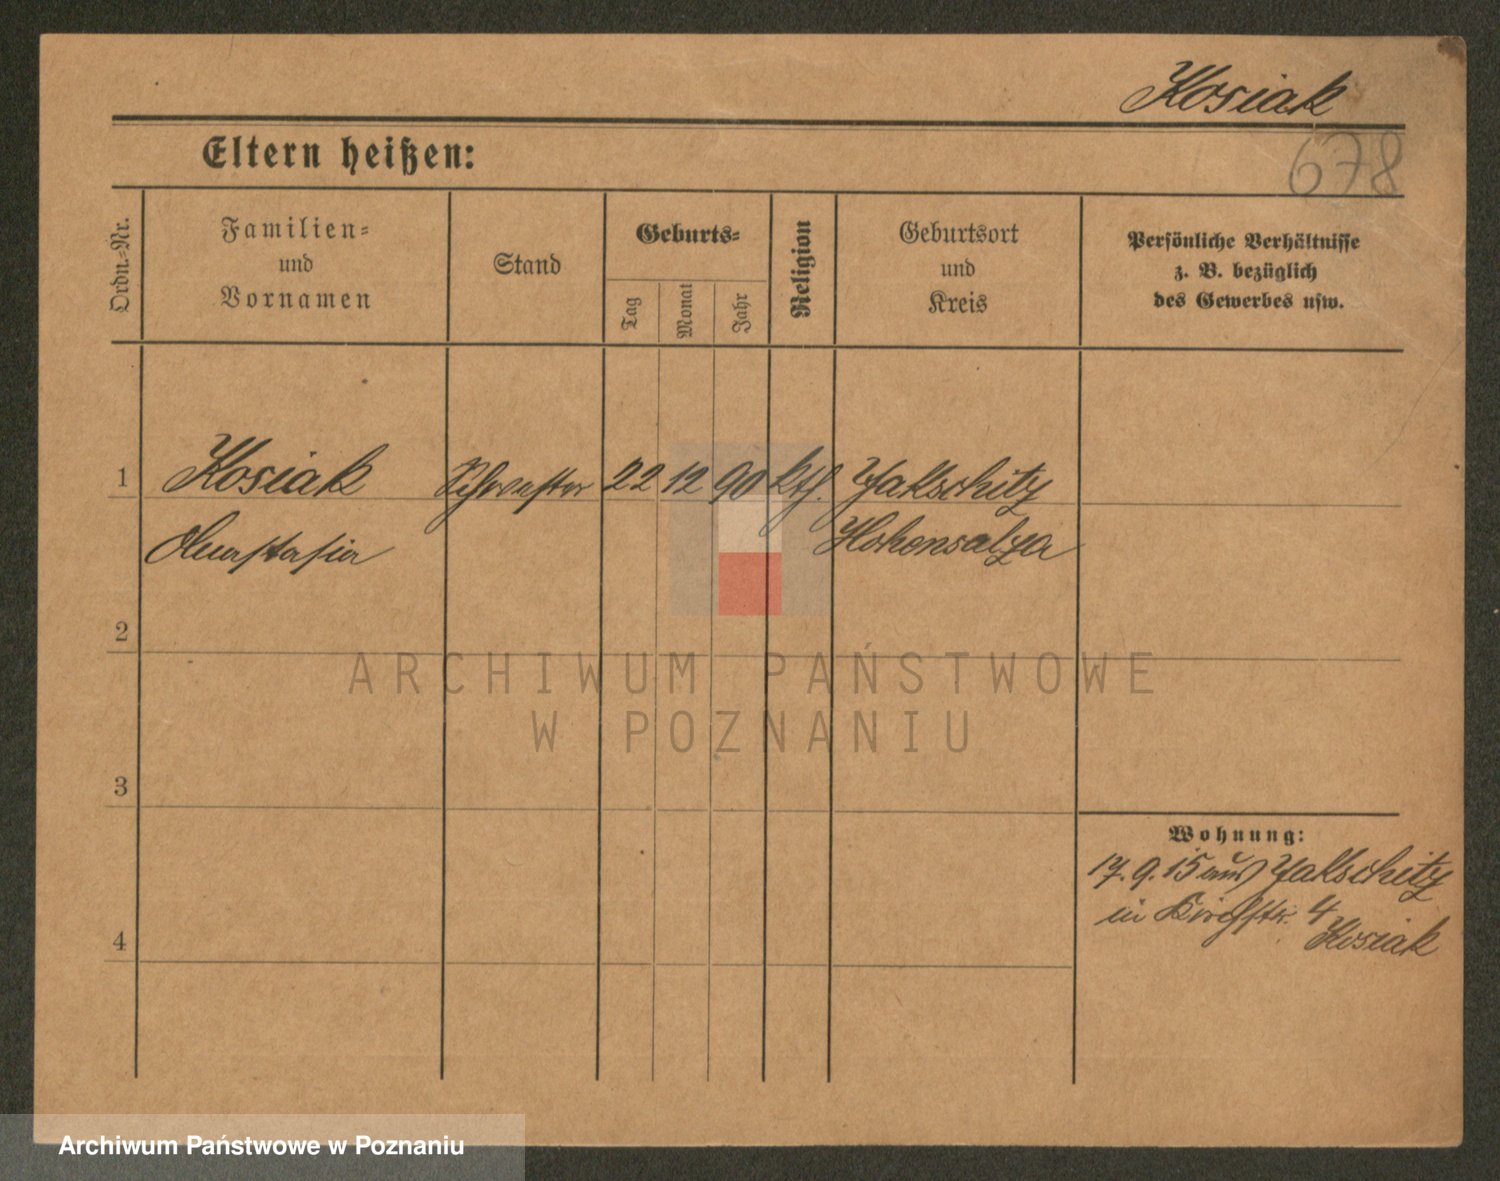 Kosiak
678
Eltern heißen:
Ordn.-Nr.
Familien-
und
Vornamen
Stand
Geburts-
Tag
Monat
Jahr
Religion
Geburtsort
und
Kreis
Persönliche Verhältnisse
z. B. bezüglich
des Gewerbes usw.
1 Kosiak Schwester 22 12 90 kth. Jakschitz
Anastasia Hohensalza
2
ARCHIWUM PAŃSTWOWE
W POZNANIU
3
Wohnung:
17.9.15 aus Jakschitz
in Kirchstr. 4
Kosiak
4
Archiwum Państwowe w Poznaniu